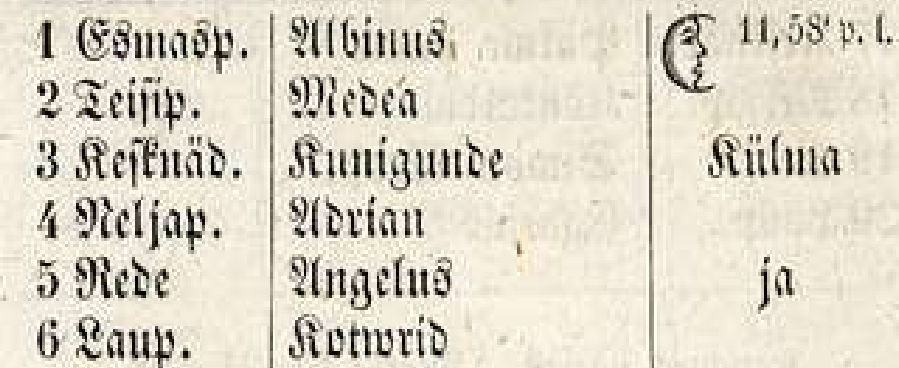 1 Esmasp. Albinus 11,58' p. l.
2 Teisip. Medea
3 Kesknäd. Kunigunde Külma
4 Neljap. Adrian
5 Rede Angelus ja
6 Laup. Kotwrid